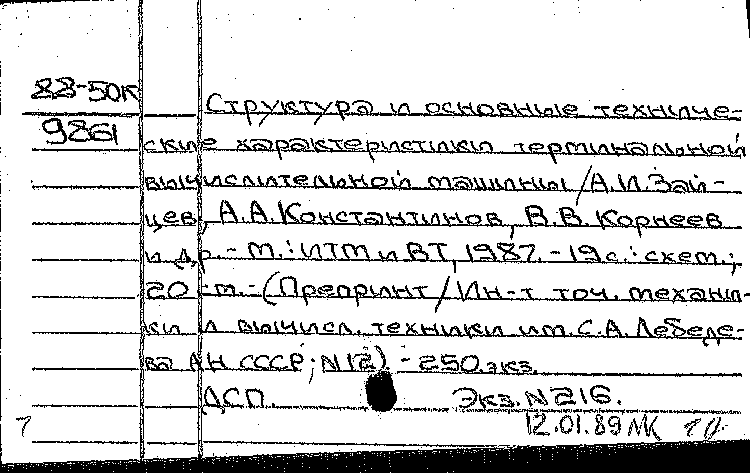 88-50К
9861
Структура и основные техниче-
ские характеристики терминальной
вычислительной машины / А.И. Зай-
цев, А.А. Константинов, В.В. Корнеев
и др. - М.: ИТМ и ВТ, 1987. - 19 с.: схем.;
20 см. - (Препринт / Ин-т точ. механи-
ки и вычисл. техники им. С.А. Лебеде-
ва АН СССР; N12) - 250 экз.
ДСП. Экз. N216.
12.01.89